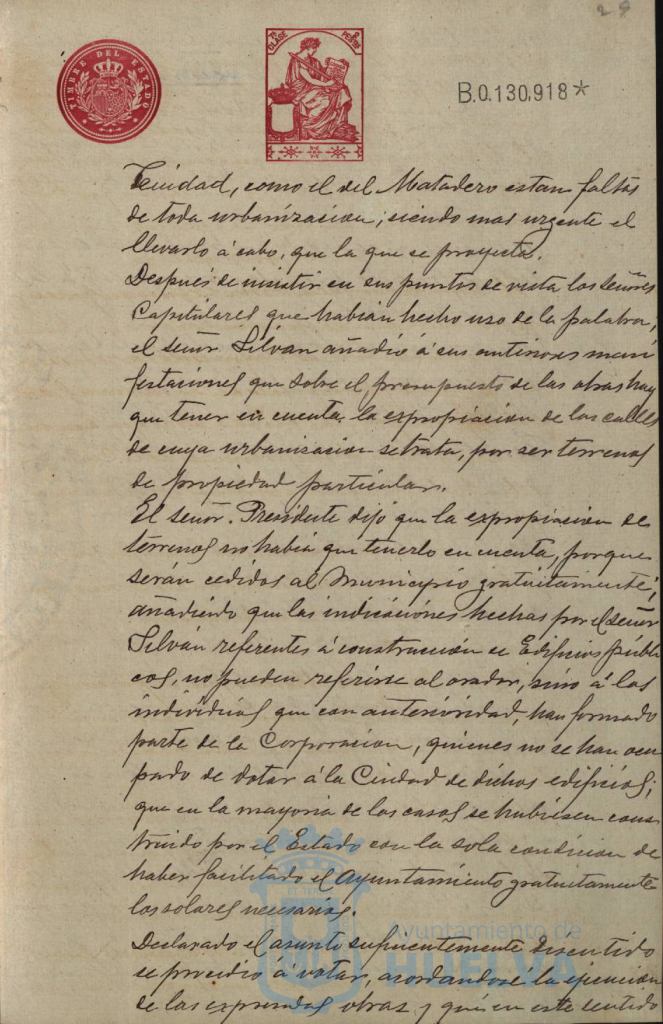 29
TIMBRE DEL ESTADO
CLASE
PESETAS
B.0.130,918*
Trinidad, como el del Matadero estan faltos
de toda urbanizacion; siendo mas urgente el
llevarlo á cabo, que la que se proyecta.
Después de insistir en sus puntos de vista los señores
Capitulares que habian hecho uso de la palabra,
el señor Silván añadió á sus anteriores mani
festaciones que sobre el presupuesto de las obras hay
que tener en cuenta la expropiacion de las calles
de cuya urbanizacion se trata, por ser terrenos
de propiedad particular.
El señor Presidente dijo que la expropiacion de
terrenos no habia que tenerlo en cuenta, porque
serán cedidos al Municipio gratuitamente;
añadiendo que las indicaciones hechas por el señor
Silván referentes á construcción de Edificios públi
cos, no pueden referirse al orador, sino á los
individuos que con anterioridad, han formado
parte de la Corporacion, quienes no se han ocu
pado de dotar á la Ciudad de dichos edificios;
que en la mayoria de los casos se hubiesen cons
truido por el Estado con la sola condicion de
haber facilitado el Ayuntamiento gratuitamente
los solares necesarios.
Declarado el asunto suficientemente discutido
se procedió á votar, acordandose la ejecucion
de las expresadas obras y que en este sentido
Ayuntamiento de
HUELVA